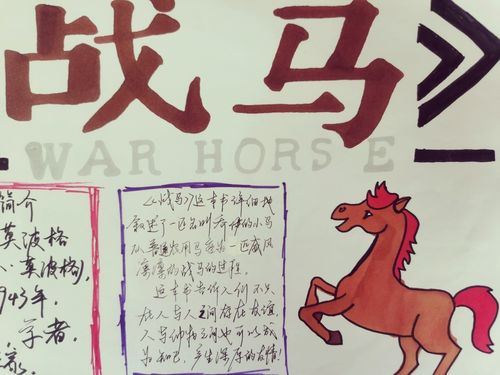 战马》
WAR HORSE
简介
英波格
·英波格),
943年,
学者,
《战马》这本书详细地
叙述了一匹名叫乔伊的小马
从普通农用马变为一匹威风
凛凛的战马的过程。
这本书告诉人们不只
在人与人之间存在友谊,
人与动物之间也可以成
为知己,产生深厚的友情!